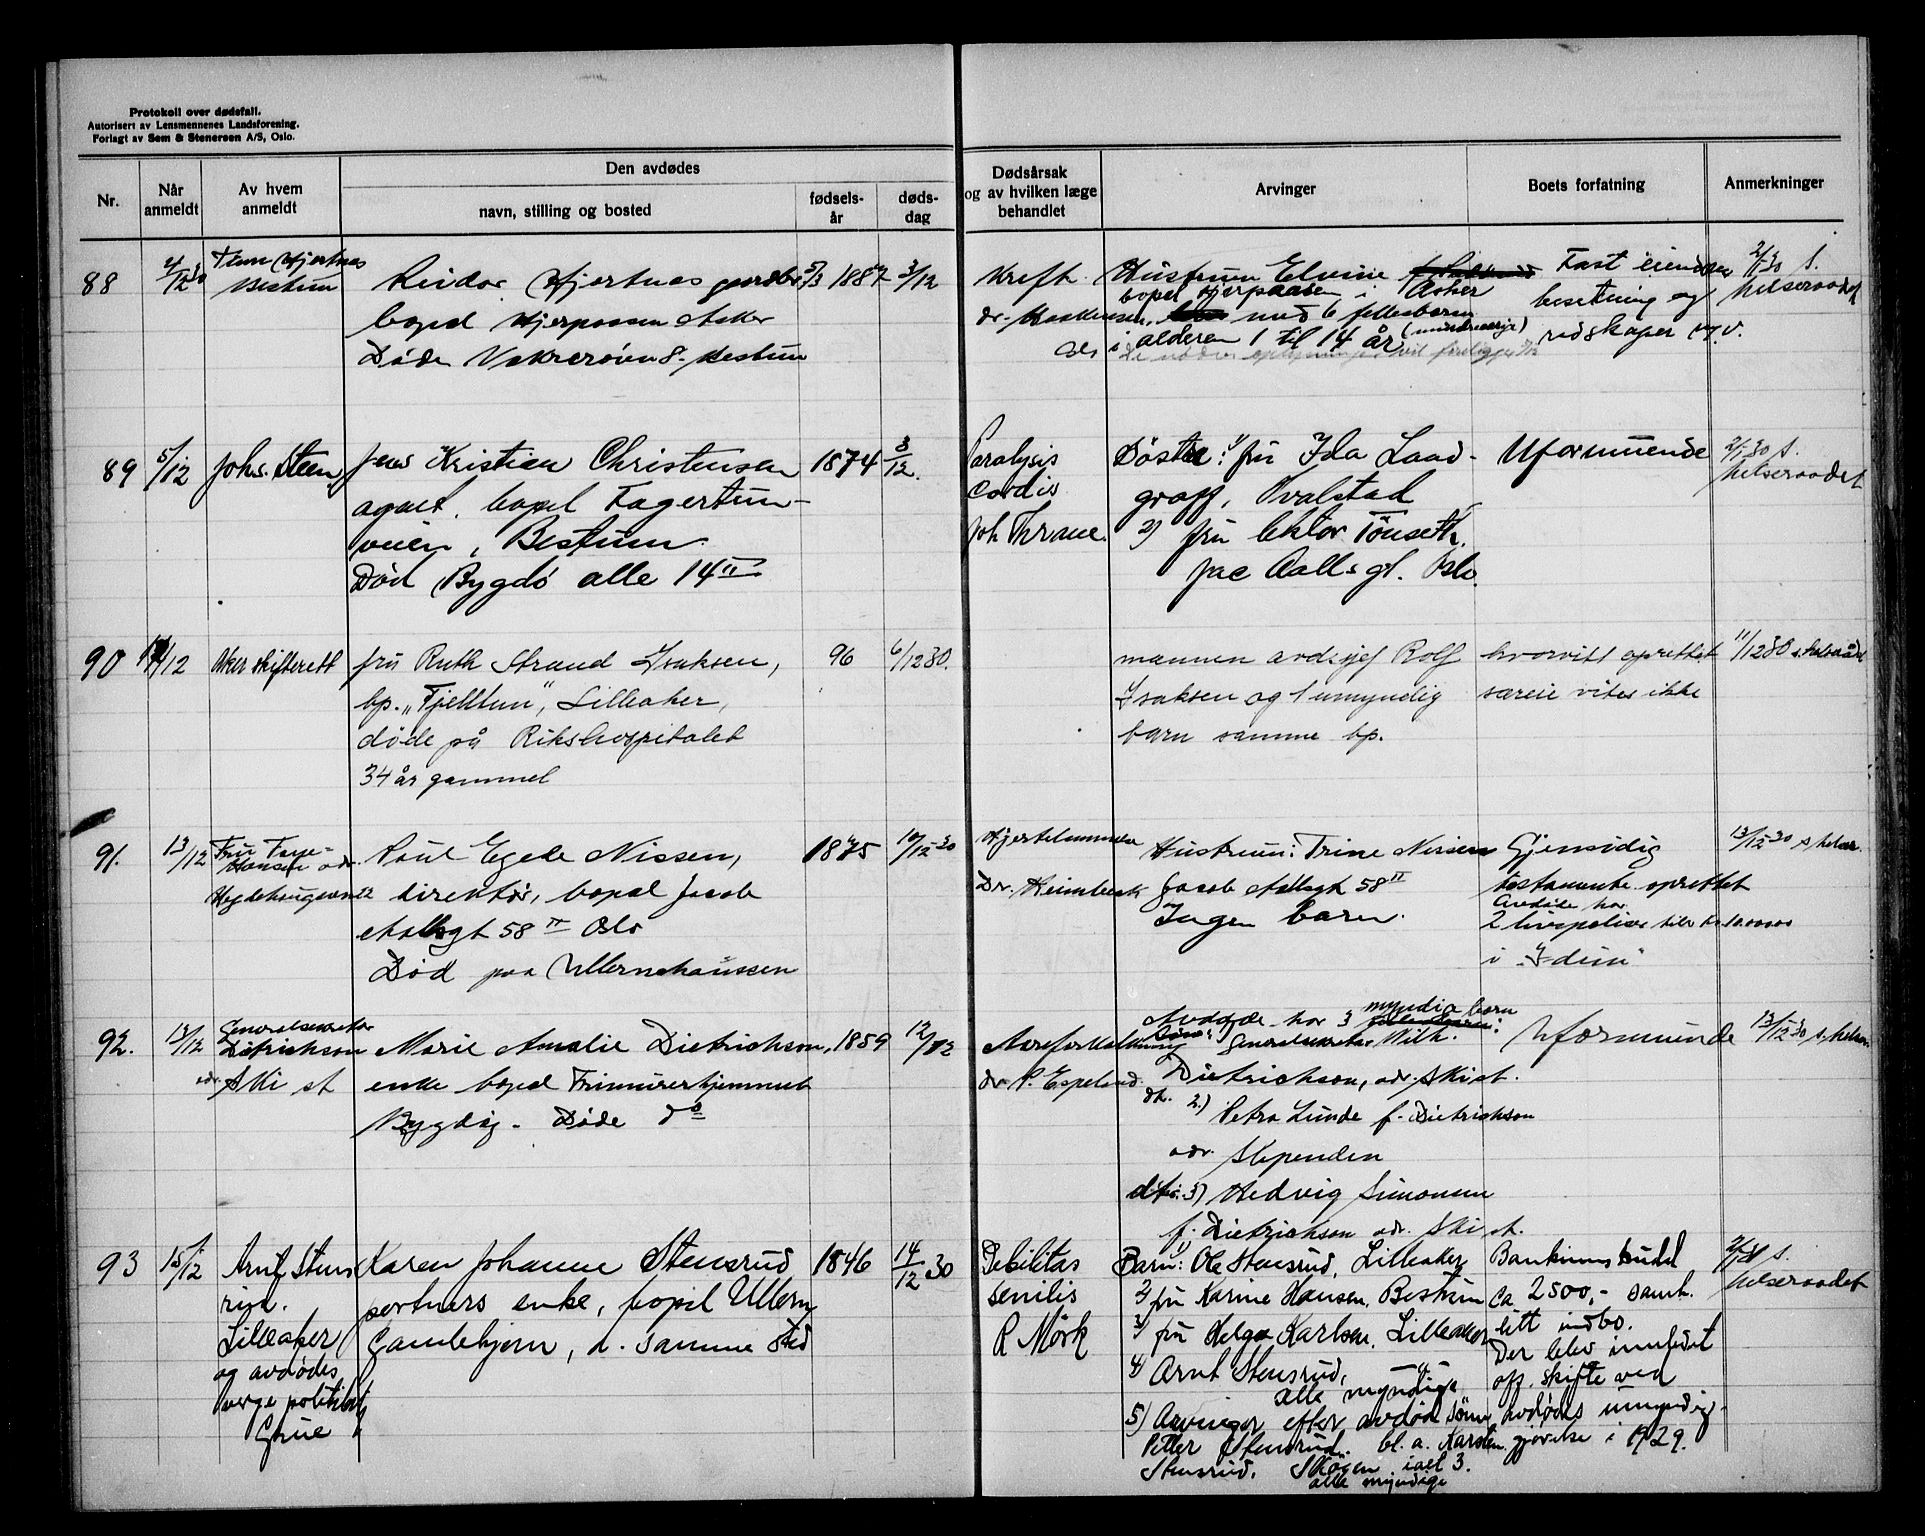 Protokoll over dødsfall.
Autorisert av Lensmennenes Landsforening.
Forlagt av Sem & Stenersen A/S, Oslo.
Nr.
Når anmeldt
Av hvem anmeldt
Den avdødes
navn, stilling og bosted
fødselsår
dødsdag
Dødsårsak og av hvilken læge behandlet
Arvinger
Boets forfatning
Anmerkninger
88
4/12 30
Hjertnes
Bestum
Reidar Hjertnes gaardbr
bopel Hjerpaasen Asker
Døde Vækerøvn 8. Bestum
5/3 1887
3/12
Kreft
dr. Haakensen
Hustrum Elvine
bopel Hjerpaasen i Asker
med 6 fellesbarn
i alderen 1 til 14 år (mindreårige)
Fast eiendom
besetning og
redskaper m.v.
2/1-30 s.
helseraadet
89
5/12
Johs. Steen
Jens Kristian Christensen
agent. bopel Fagertun-
veien, Bestum.
Død Bygdö alle 14 II
1874
3/12.
Paralysis
Cordis
Joh Thrane.
Døstre: 1/ fru Ida Laad-
gropp, Hvalstad
2) fru lektor Tönseth,
Jac Aalls gt. Oslo.
Uformuende
2/1-30 s.
helseraadet
90
11/12
Aker skifterett
fru Ruth Strand Isaksen,
bp. "Fjelltun", Lilleaker,
døde på Rikshospitalet
34 år gammel
96
6/12 30.
mannen avdsjef Rolf
Isaksen og 1 umyndig
barn samme bp.
hvorvitt oprettet
særeie vites ikke
11/12 30 s. helseråd
91.
13/12
Fru Faye-
Hansen adr.
Hegdehaugsvn 12
Poul Egede Nissen,
direktør, bopel Jacob
Aallsgt 58 II Oslo
Død paa Ullernchausseen
1875
10/12 30
Hjertelammelse
Dr. Heimbeck
Hustrum: Trine Nissen
Jacob Aallsgt 58 II
Ingen barn.
Gjensidig
testamente oprettet
Avdøde har
2 livspoliser kr 10.000.00
i "Idun"
13/12 30 s. helser.
92.
13/12
Generalsekretær
Dietrichson
adr. Ski st
Marie Amalie Dietrichson,
enke bopel Frimurerhjemmet
Bygdöy - Døde do
1859
12/12
Aareforkalkning
dr. P. Espeland.
Avdøde har 3 myndige barn
Søn: 1/ Generalsekretær Wilh.
Dietrichson, adr. Ski st.
dt. 2.) Petra Lunde f. Dietrichson
adr. Slependen
dtr: 3) Hedvig Simonsen
f. Dietrichson adr. Ski st.
Uformuende
13/12 30 s. helser.
93
15/12
Arnt Stens
rud.
Lilleaker
og avdødes
verge politibtj
Grue
Karen Johanne Stensrud
portners enke, bopel Ullern
Gamlehjem, d. samme sted
1846
14/12 30
Debilitas
senilis
R Mörk
Barn: 1) Ole Stensrud, Lilleaker
2) fru Karine Hansen, Bestum
3) fru Helga Karlsen, Lilleaker
4) Arnt Stensrud, —"—
alle myndige
5) Arvinger efter avdød sønn
Petter Stensrud. bl. a. Karsten
Stensrud, Skøyen ialt 3.
alle myndige
Bankinnskudd
ca 2500,- samt.
litt indbo.
Der blev innledet
off. skifte ved
avdødes umyndig-
gjørelse i 1929.
2/1-31 s.
helseraadet